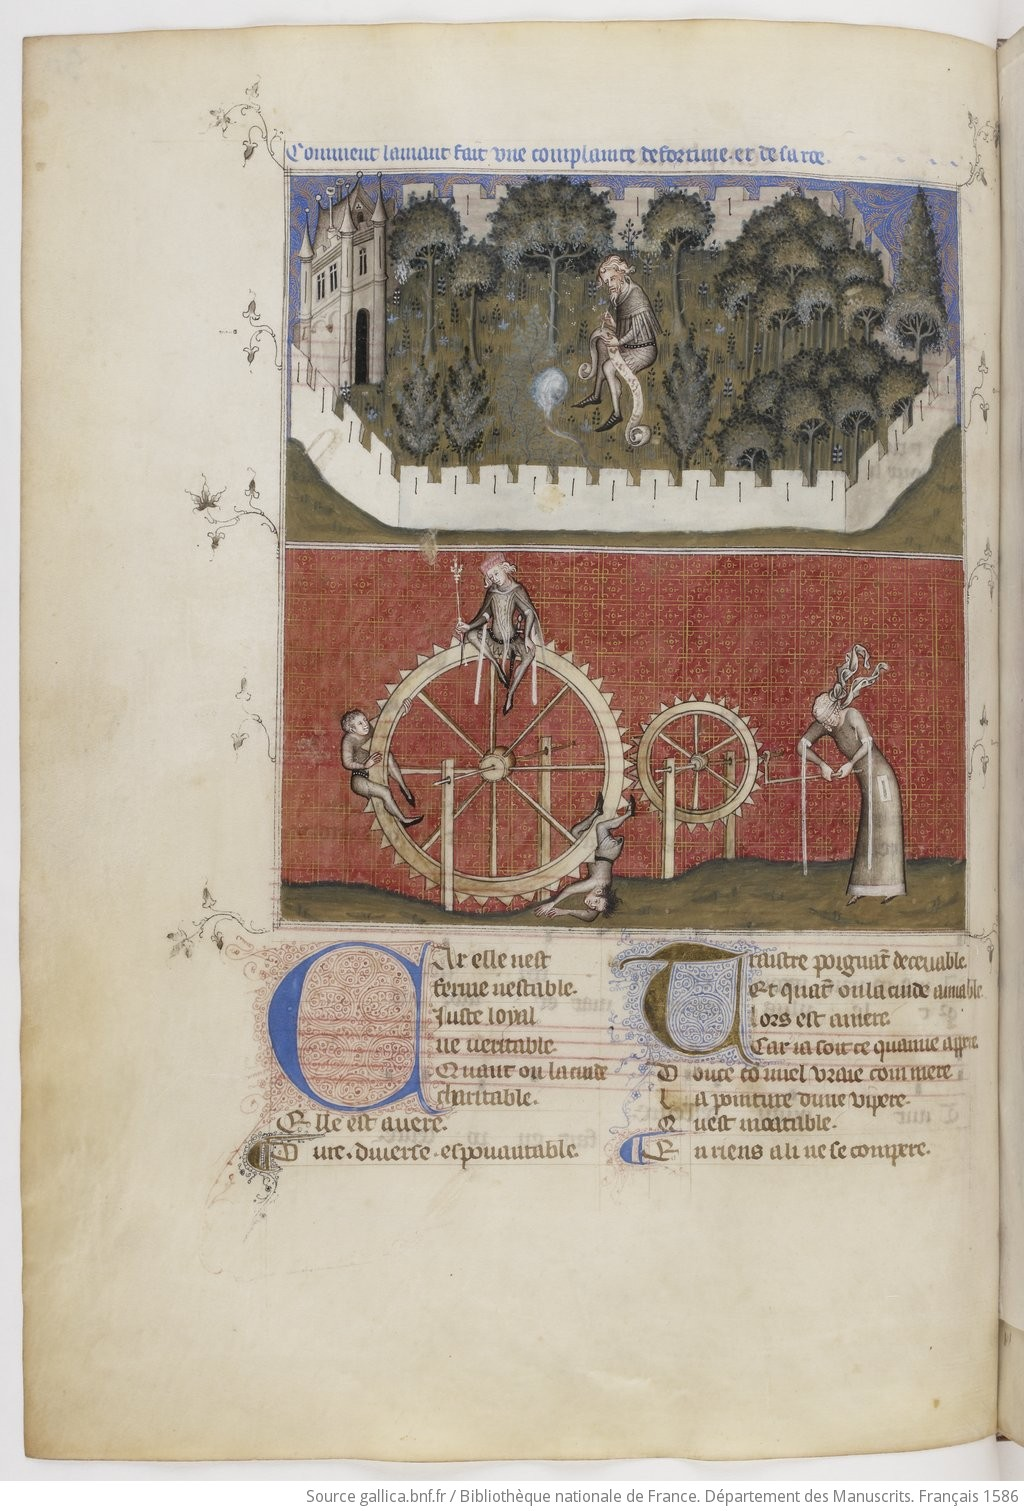 Comment lamant fait vne complainte de fortune. et de sa roe.
Car elle nest
ferme nestable.
Juste loyal
ne veritable.
Quant on la cuide
charitable.
Elle est auere.
Dure. diuerse. espouantable.
Traistre poignant deceuable.
Et quant on la cuide amiable
lors est amere.
Car ia soit ce quamie appere.
Douce com miel vraie com mere
La pointure dune vipere.
Quest incurable.
En riens a li ne se compere.
Source gallica.bnf.fr / Bibliothèque nationale de France. Département des Manuscrits. Français 1586